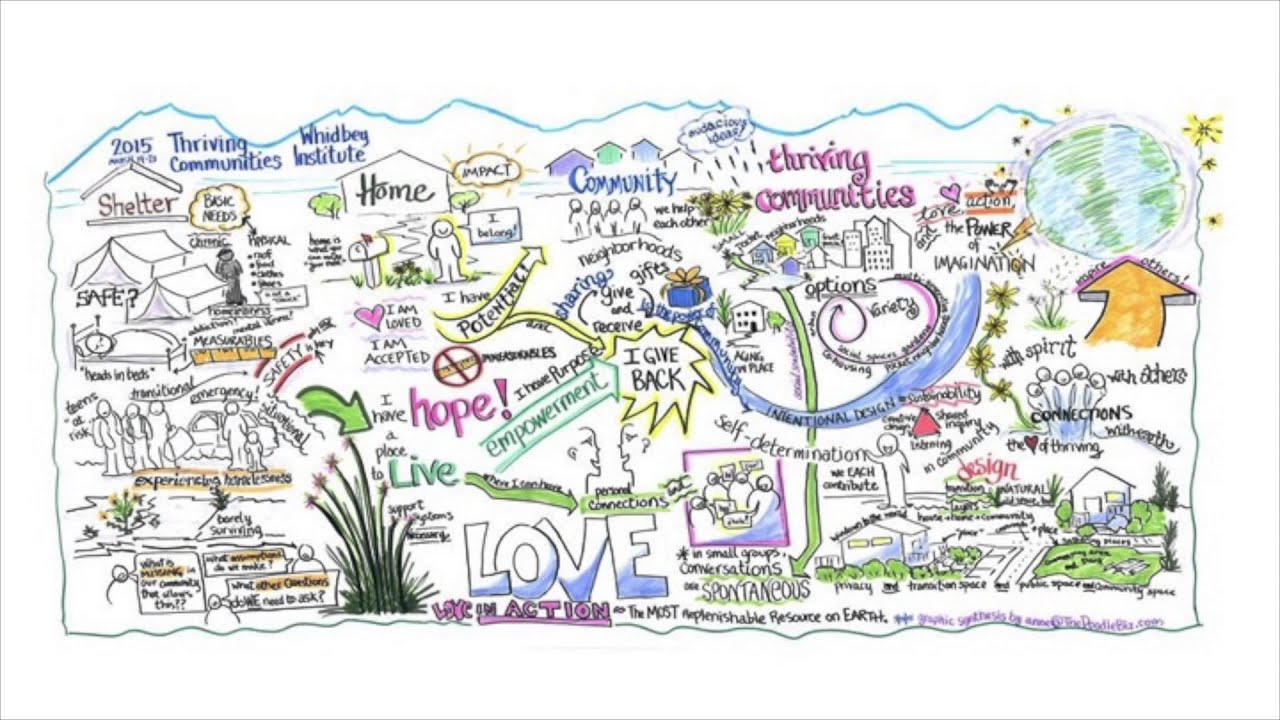 2015
Thriving
Communities
Whidbey
Institute
Shelter
BASIC
NEEDS
chronic
PHYSICAL
• roof
• food
• clothes
• shoes
SAFE?
homelessness
addiction?
mental illness?
MEASURABLES
"heads in beds"
SAFETY
is key
transitional
emergency!
situational
teens
"at
risk"
experiencing homelessness
barely
surviving
What is
MISSING in
our community
that allows
this??
What assumptions
do we make?
What other Questions
do WE need to ask?
Home
IMPACT
home is
what you
can make
I
belong!
I AM
LOVED
I AM
ACCEPTED
I have
Potential!
and
IMMEASURABLES
I have Purpose
I
have
a
place
to
hope!
Live
empowerment
support
systems
necessary
where I can have
personal
connections
LOVE
LOVE IN ACTION = The MOST Replenishable Resource on EARTH.
Community
we help
each other
neighborhoods
sharing
gifts
Give
and
receive
I GIVE
BACK
audacious
ideas!
thriving
communities
small
pocket neighborhoods
options
Variety
AGING
IN PLACE
social spaces
INTENTIONAL DESIGN
sustainability
self-determination
* in small groups,
Conversations
are SPONTANEOUS
we EACH
contribute
creative
shared
inquiry
listening
in community
Love
and
action,
the POWER
of
IMAGINATION
inspire others!
with spirit
with others
CONNECTIONS
with earth
the
of thriving
design
transition
layers
NATURAL
house + home + community
windows to the world
"place"
gathering places
privacy and transition space and public space and community space
** graphic synthesis by anne@TheDoodleBiz.com